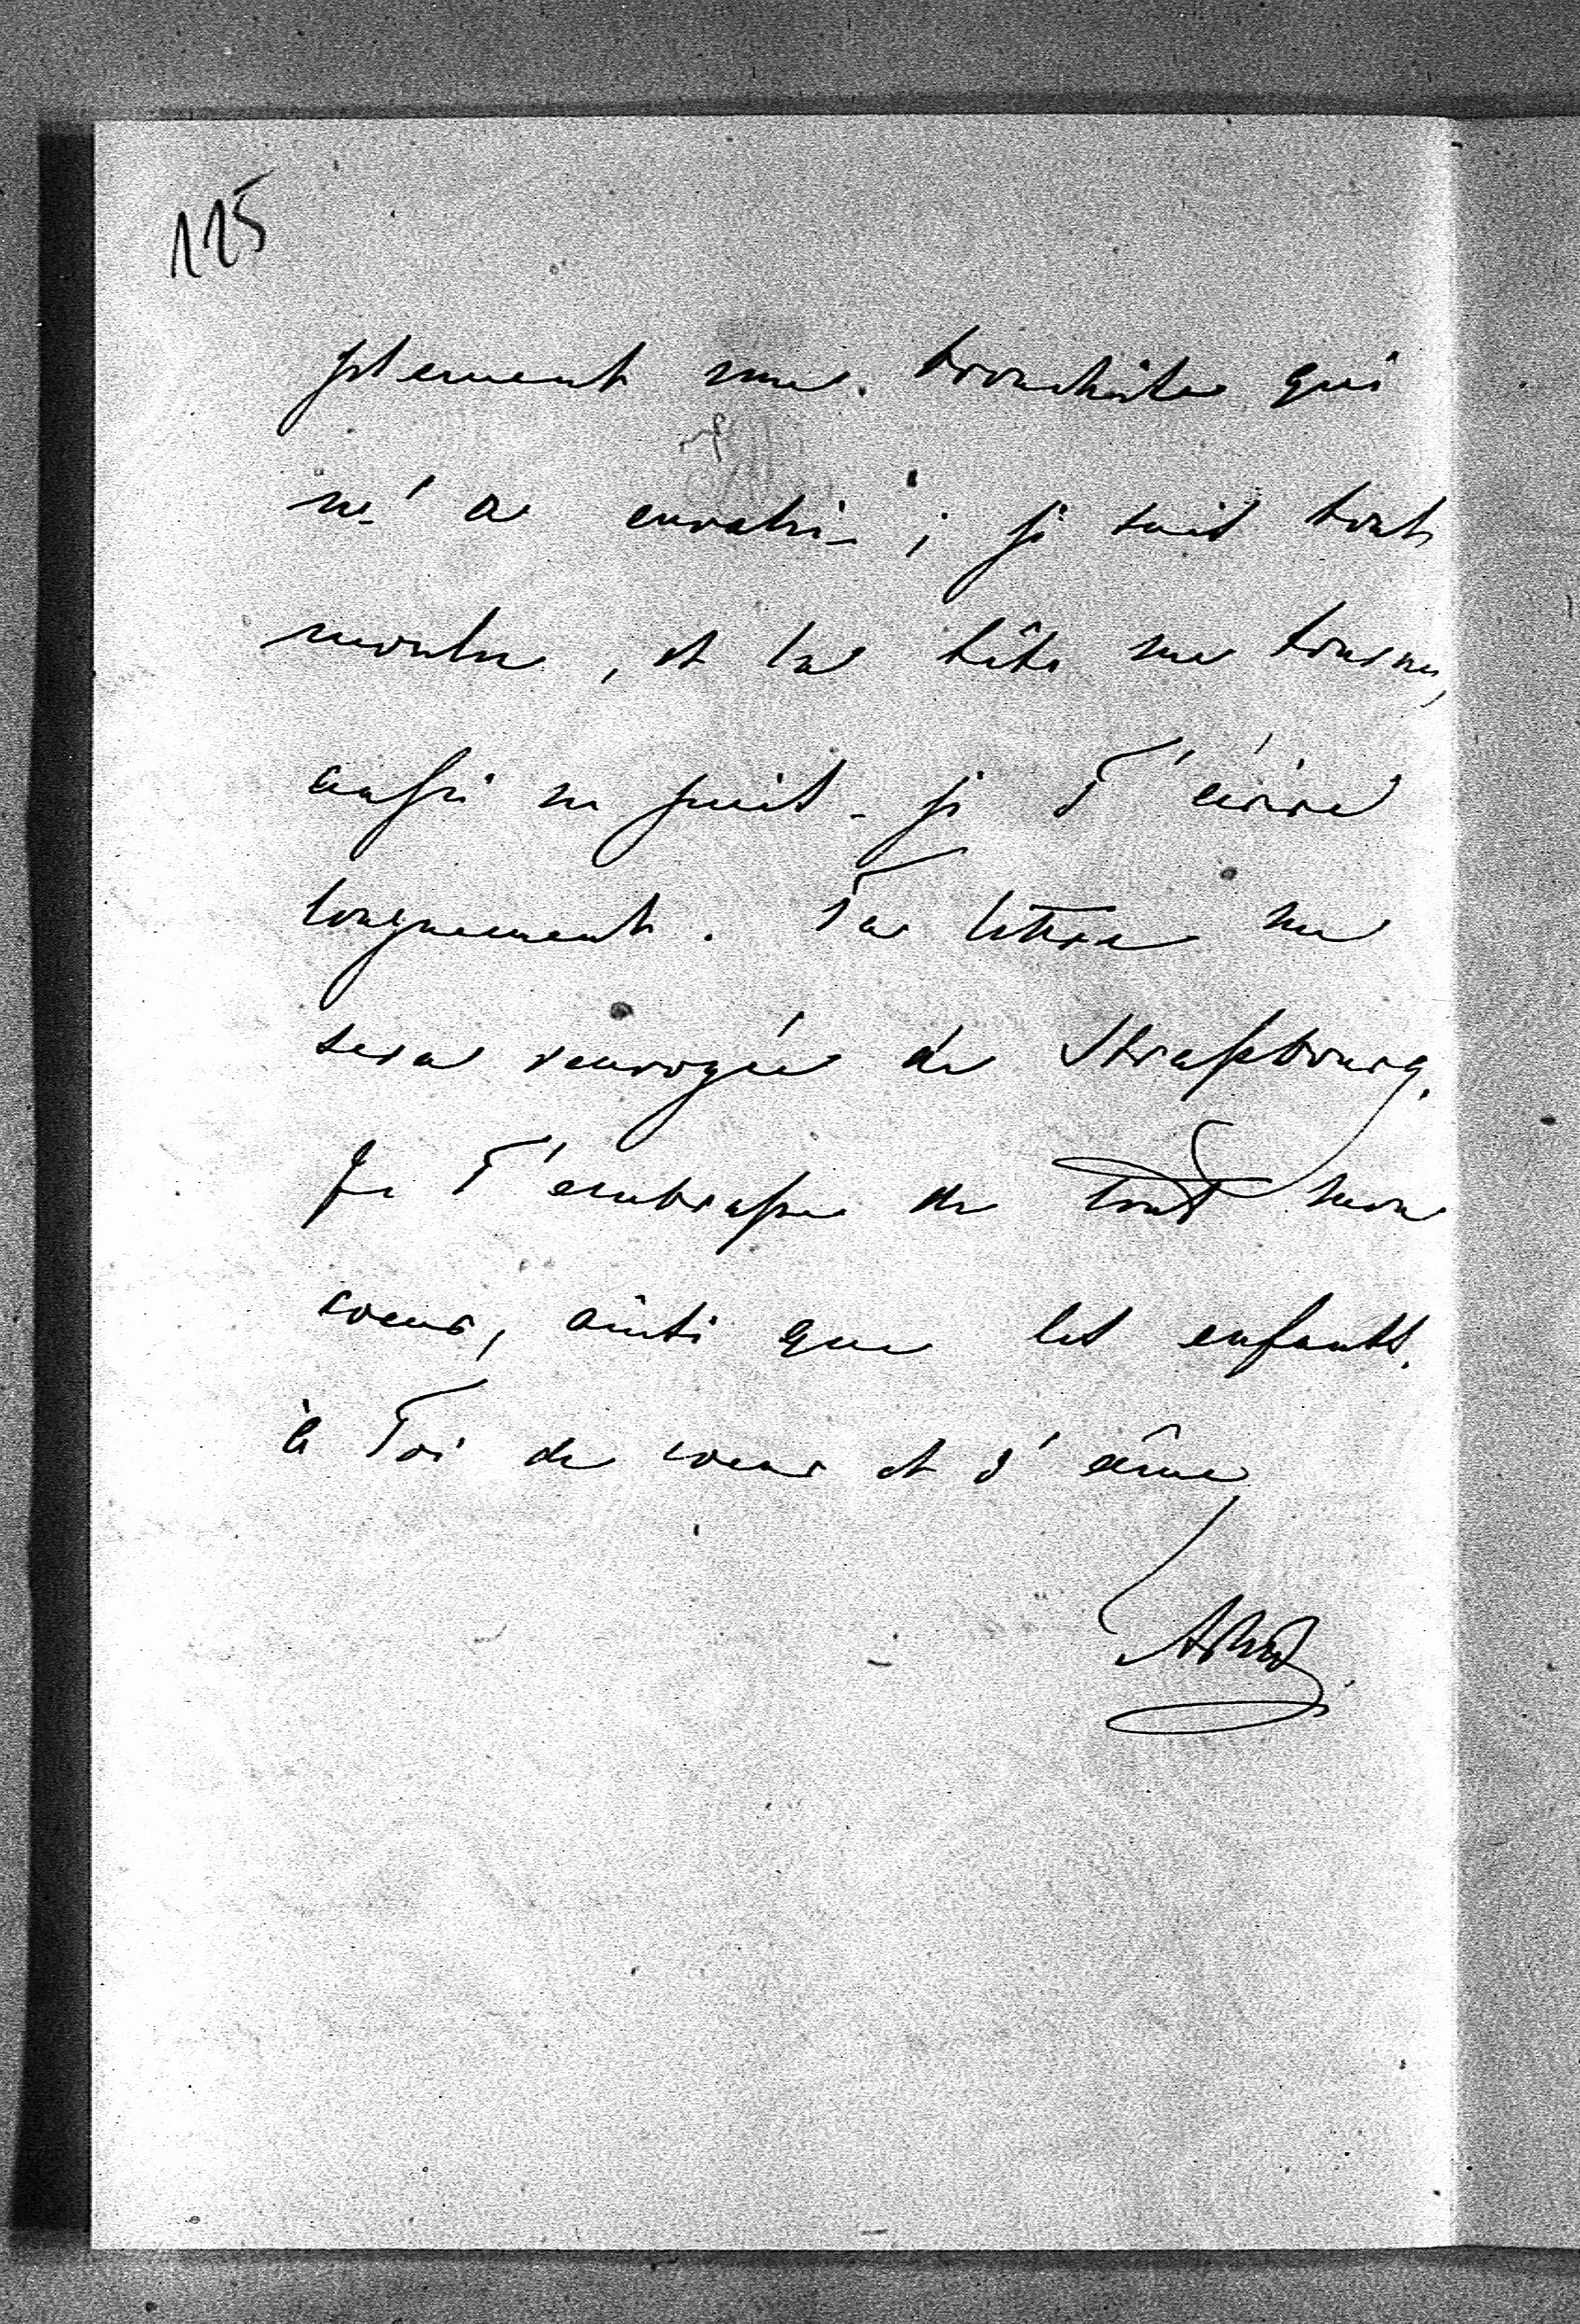 115
plement une bronchite qui
m'a envahi ; je suis tout
moulu, et la tête me tourne,
aussi ne puis-je T'écrire
longuement. Ta lettre me
sera renvoyée de Strassbourg.
Je T'embrasse de tout mon
coeur, ainsi que les enfants.
à Toi de coeur et d'âme